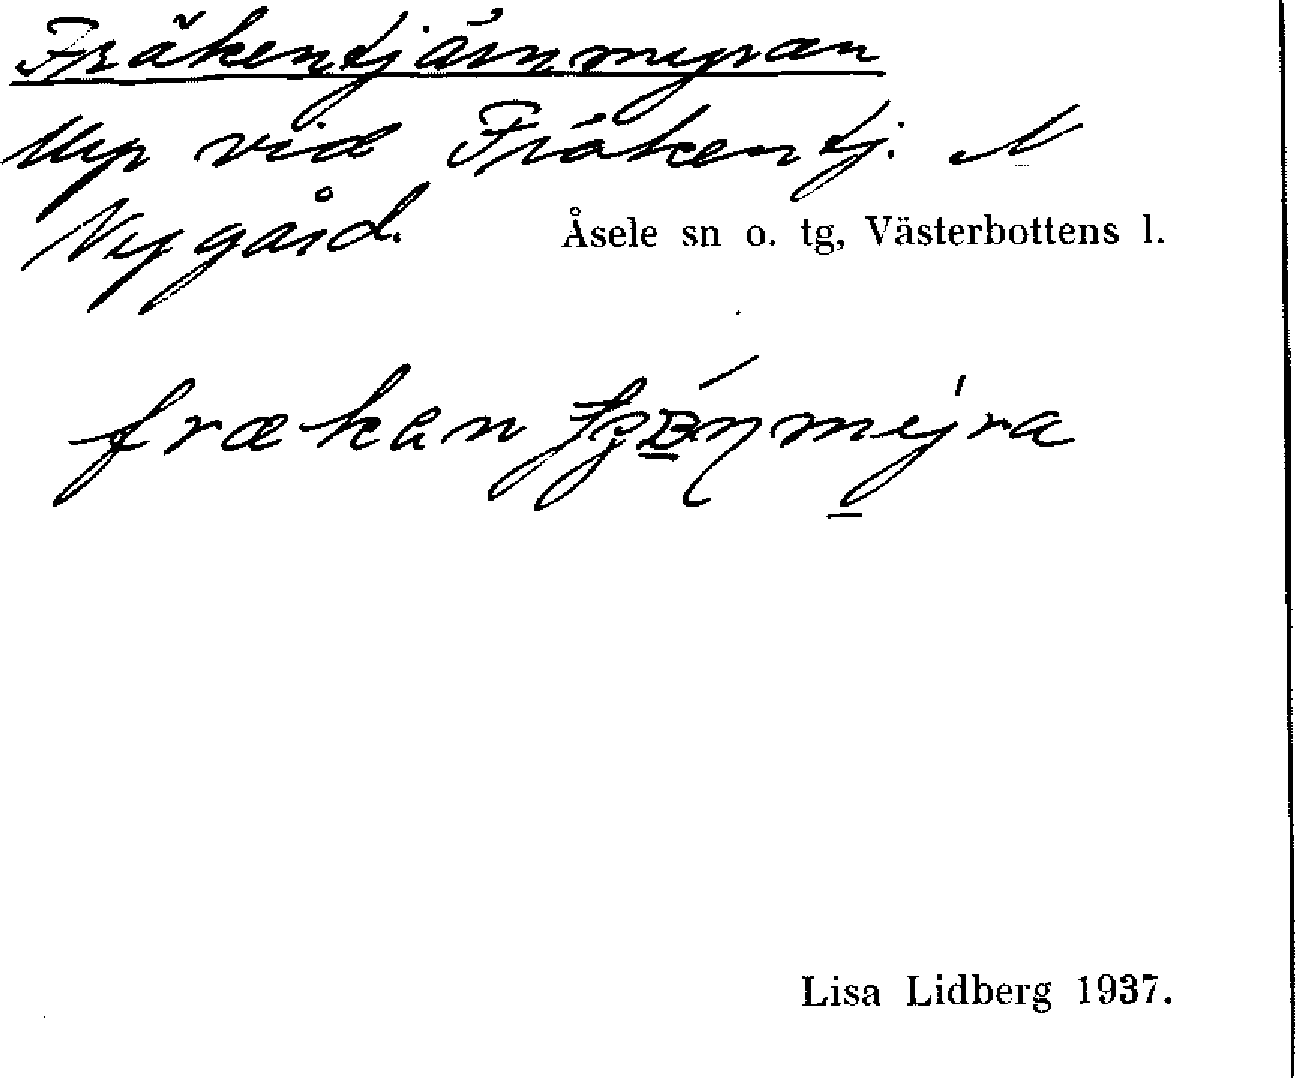 Fräkentjärnmyran
Myr vid Fräkentj. N
Nygård. Åsele sn o. tg, Västerbottens l.
Lisa Lidberg 1937.